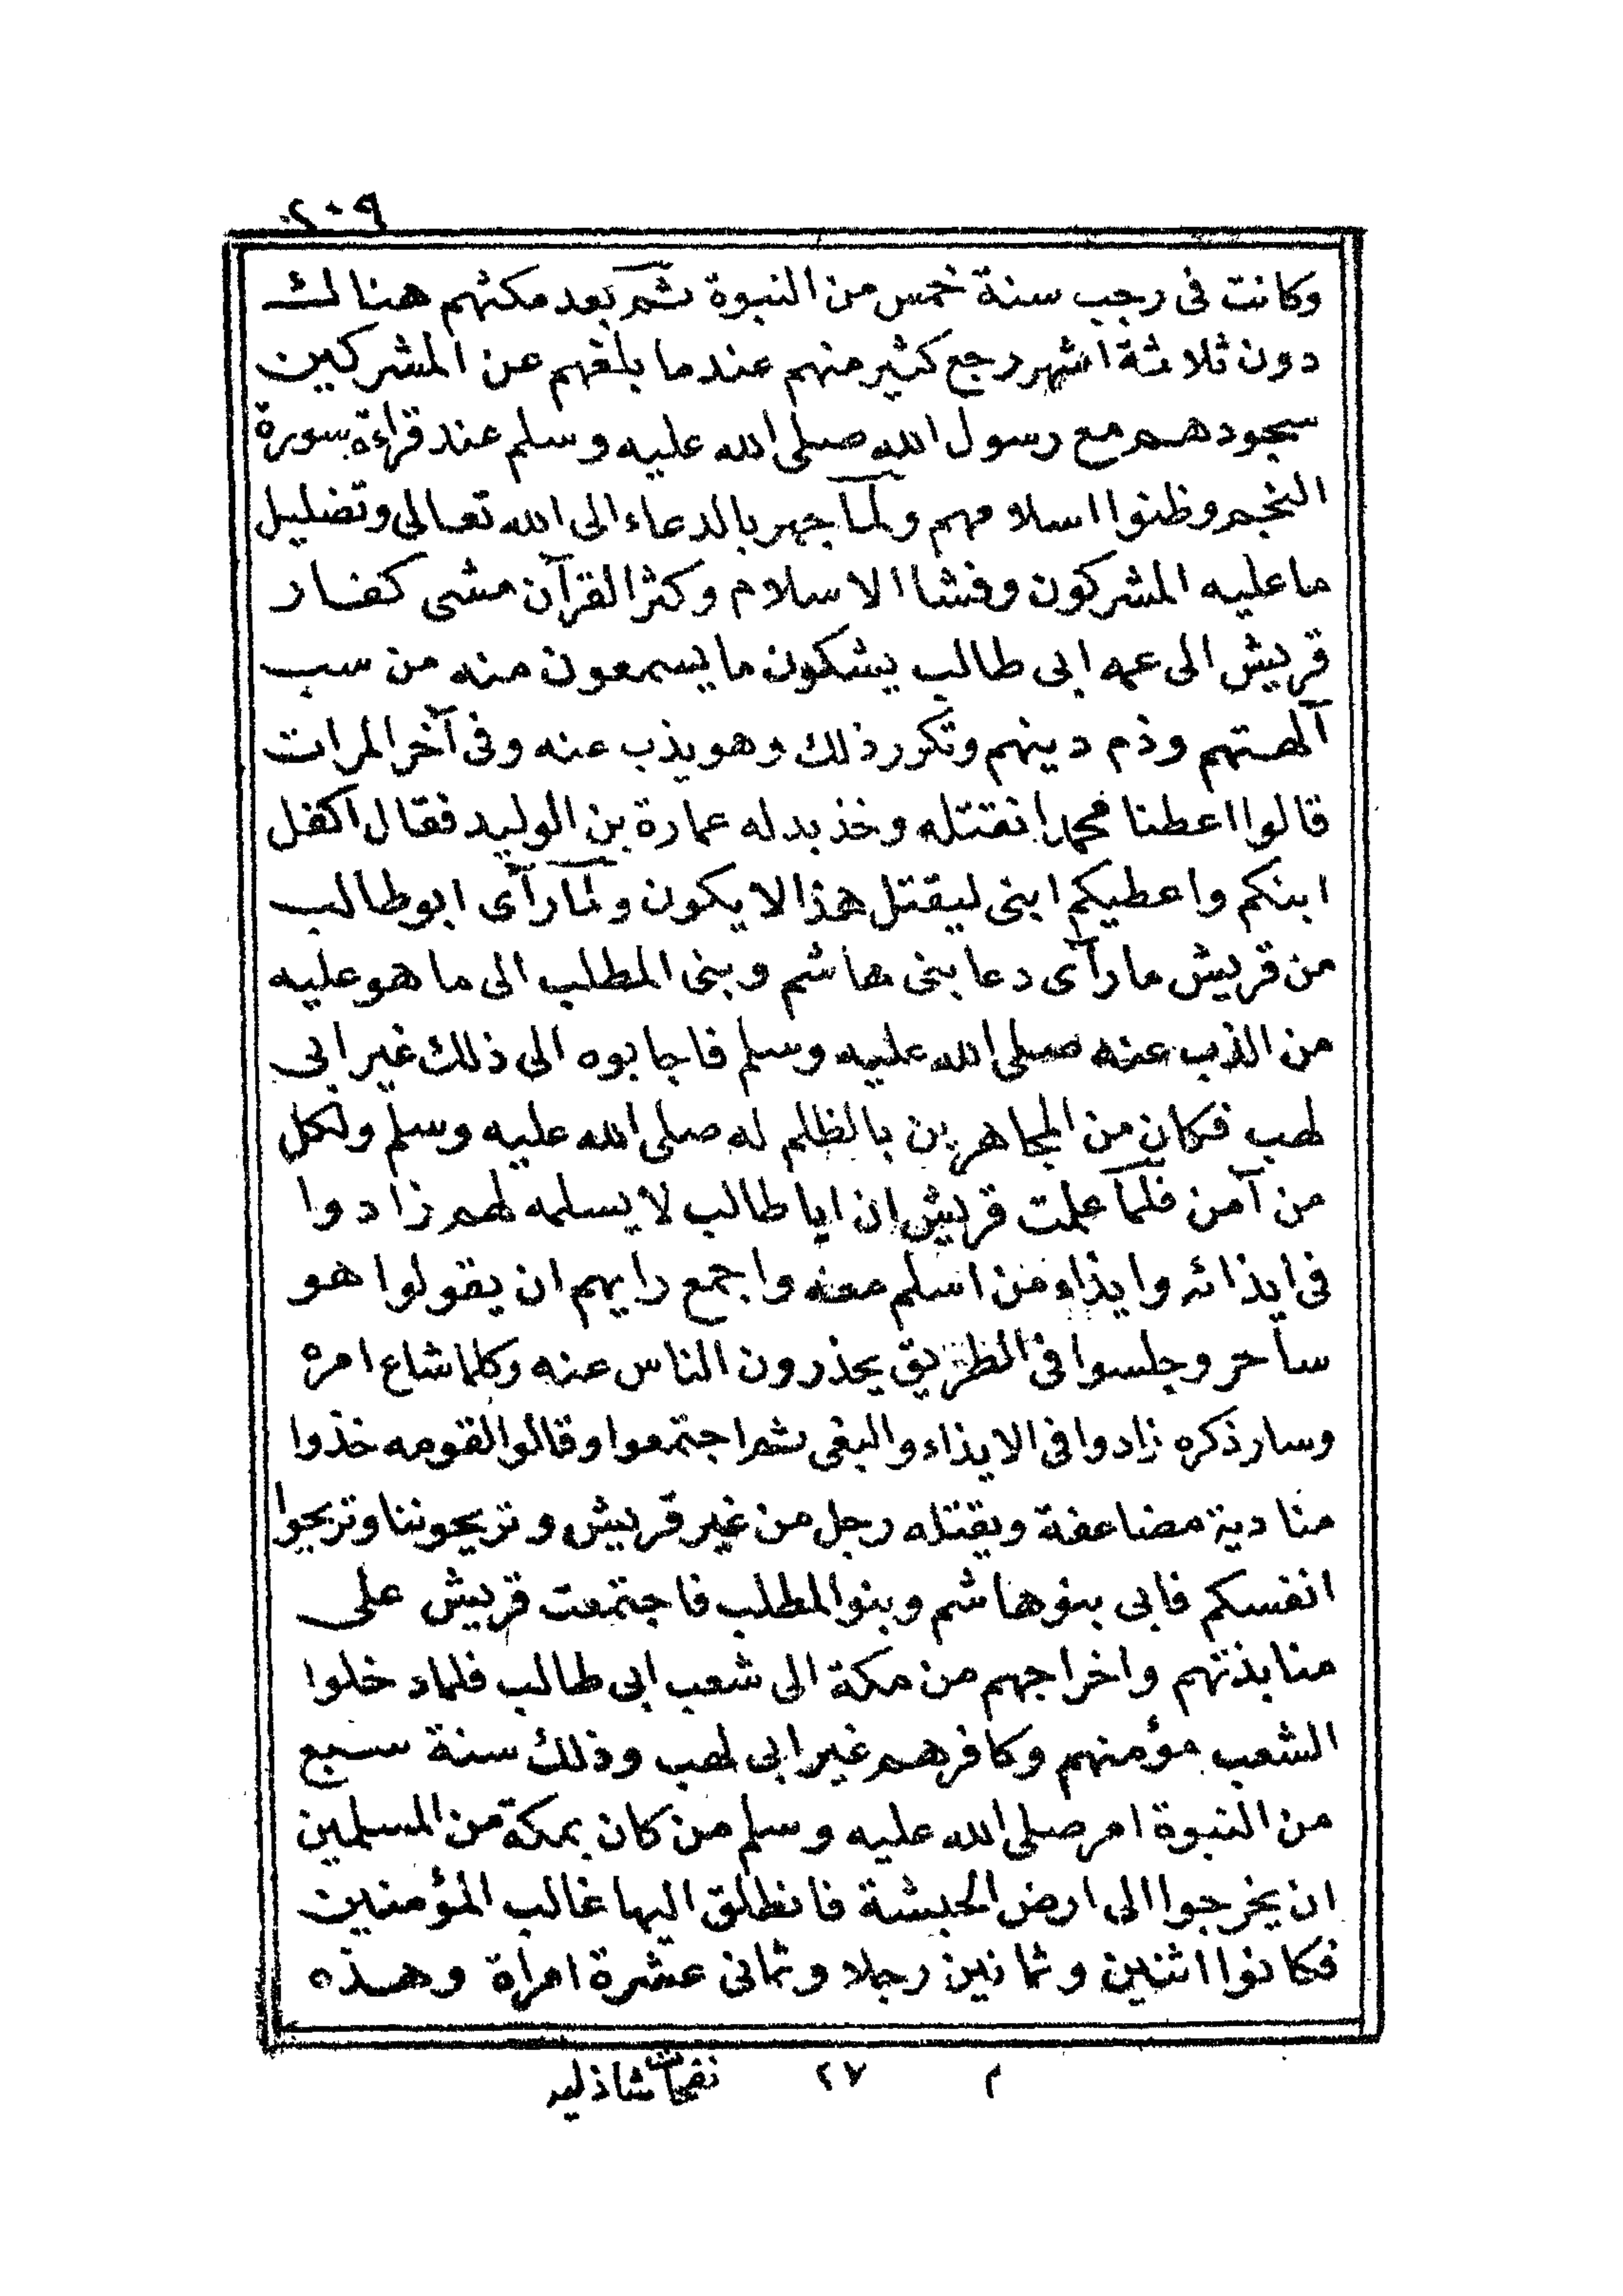 ٢٠٩
وكانت فى رجب سنة خمس من النبوة ثم بعد مكثهم هنالك
دون ثلاثة اشهر رجع كثير منهم عندما بلغهم عن المشركين
سجودهم مع رسول الله صلى الله عليه وسلم عند قراءة سورة
النجم وظنوا اسلامهم ولما جهر بالدعاء الى الله تعالى وتضليل
ما عليه المشركون وفشا الاسلام وكثر القرآن مشى كفار
قريش الى عمه ابى طالب يشكون ما يسمعون منه من سب
آلهتهم وذم دينهم وتكرر ذلك وهو يذب عنه وفى آخر المرات
قالوا اعطنا محمدا نقتله وخذ بدله عمارة بن الوليد فقال اكفل
ابنكم واعطيكم ابنى ليقتل هذا لا يكون ولما رآى ابو طالب
من قريش ما رآى دعا بنى هاشم وبنى المطلب الى ما هو عليه
من الذب عنه صلى الله عليه وسلم فاجابوه الى ذلك غير ابى
لهب فكان من المجاهرين بالظلم له صلى الله عليه وسلم ولكل
من آمن فلما علمت قريش ان ابا طالب لا يسلمه لهم زادوا
فى ايذائه وايذاء من اسلم معه واجمع رايهم ان يقولوا هو
ساحر وجلسوا فى الطريق يحذرون الناس عنه وكلما شاع امره
وسار ذكره زادوا فى الايذاء والبغى ثم اجتمعوا وقالوا لقومه خذوا
منا دية مضاعفة ويقتله رجل من غير قريش وتريحوننا وتريحوا
انفسكم فابى بنو هاشم وبنو المطلب فاجتمعت قريش على
منابذتهم واخراجهم من مكة الى شعب ابى طالب فلما دخلوا
الشعب مؤمنهم وكافرهم غير ابى لهب وذلك سنة سبع
من النبوة امر صلى الله عليه وسلم من كان بمكة من المسلمين
ان يخرجوا الى ارض الحبشة فانطلق اليها غالب المؤمنين
فكانوا اثنين وثمانين رجلا وثمانى عشرة امراة وهذه
م ٢٧ نفحات شاذليه